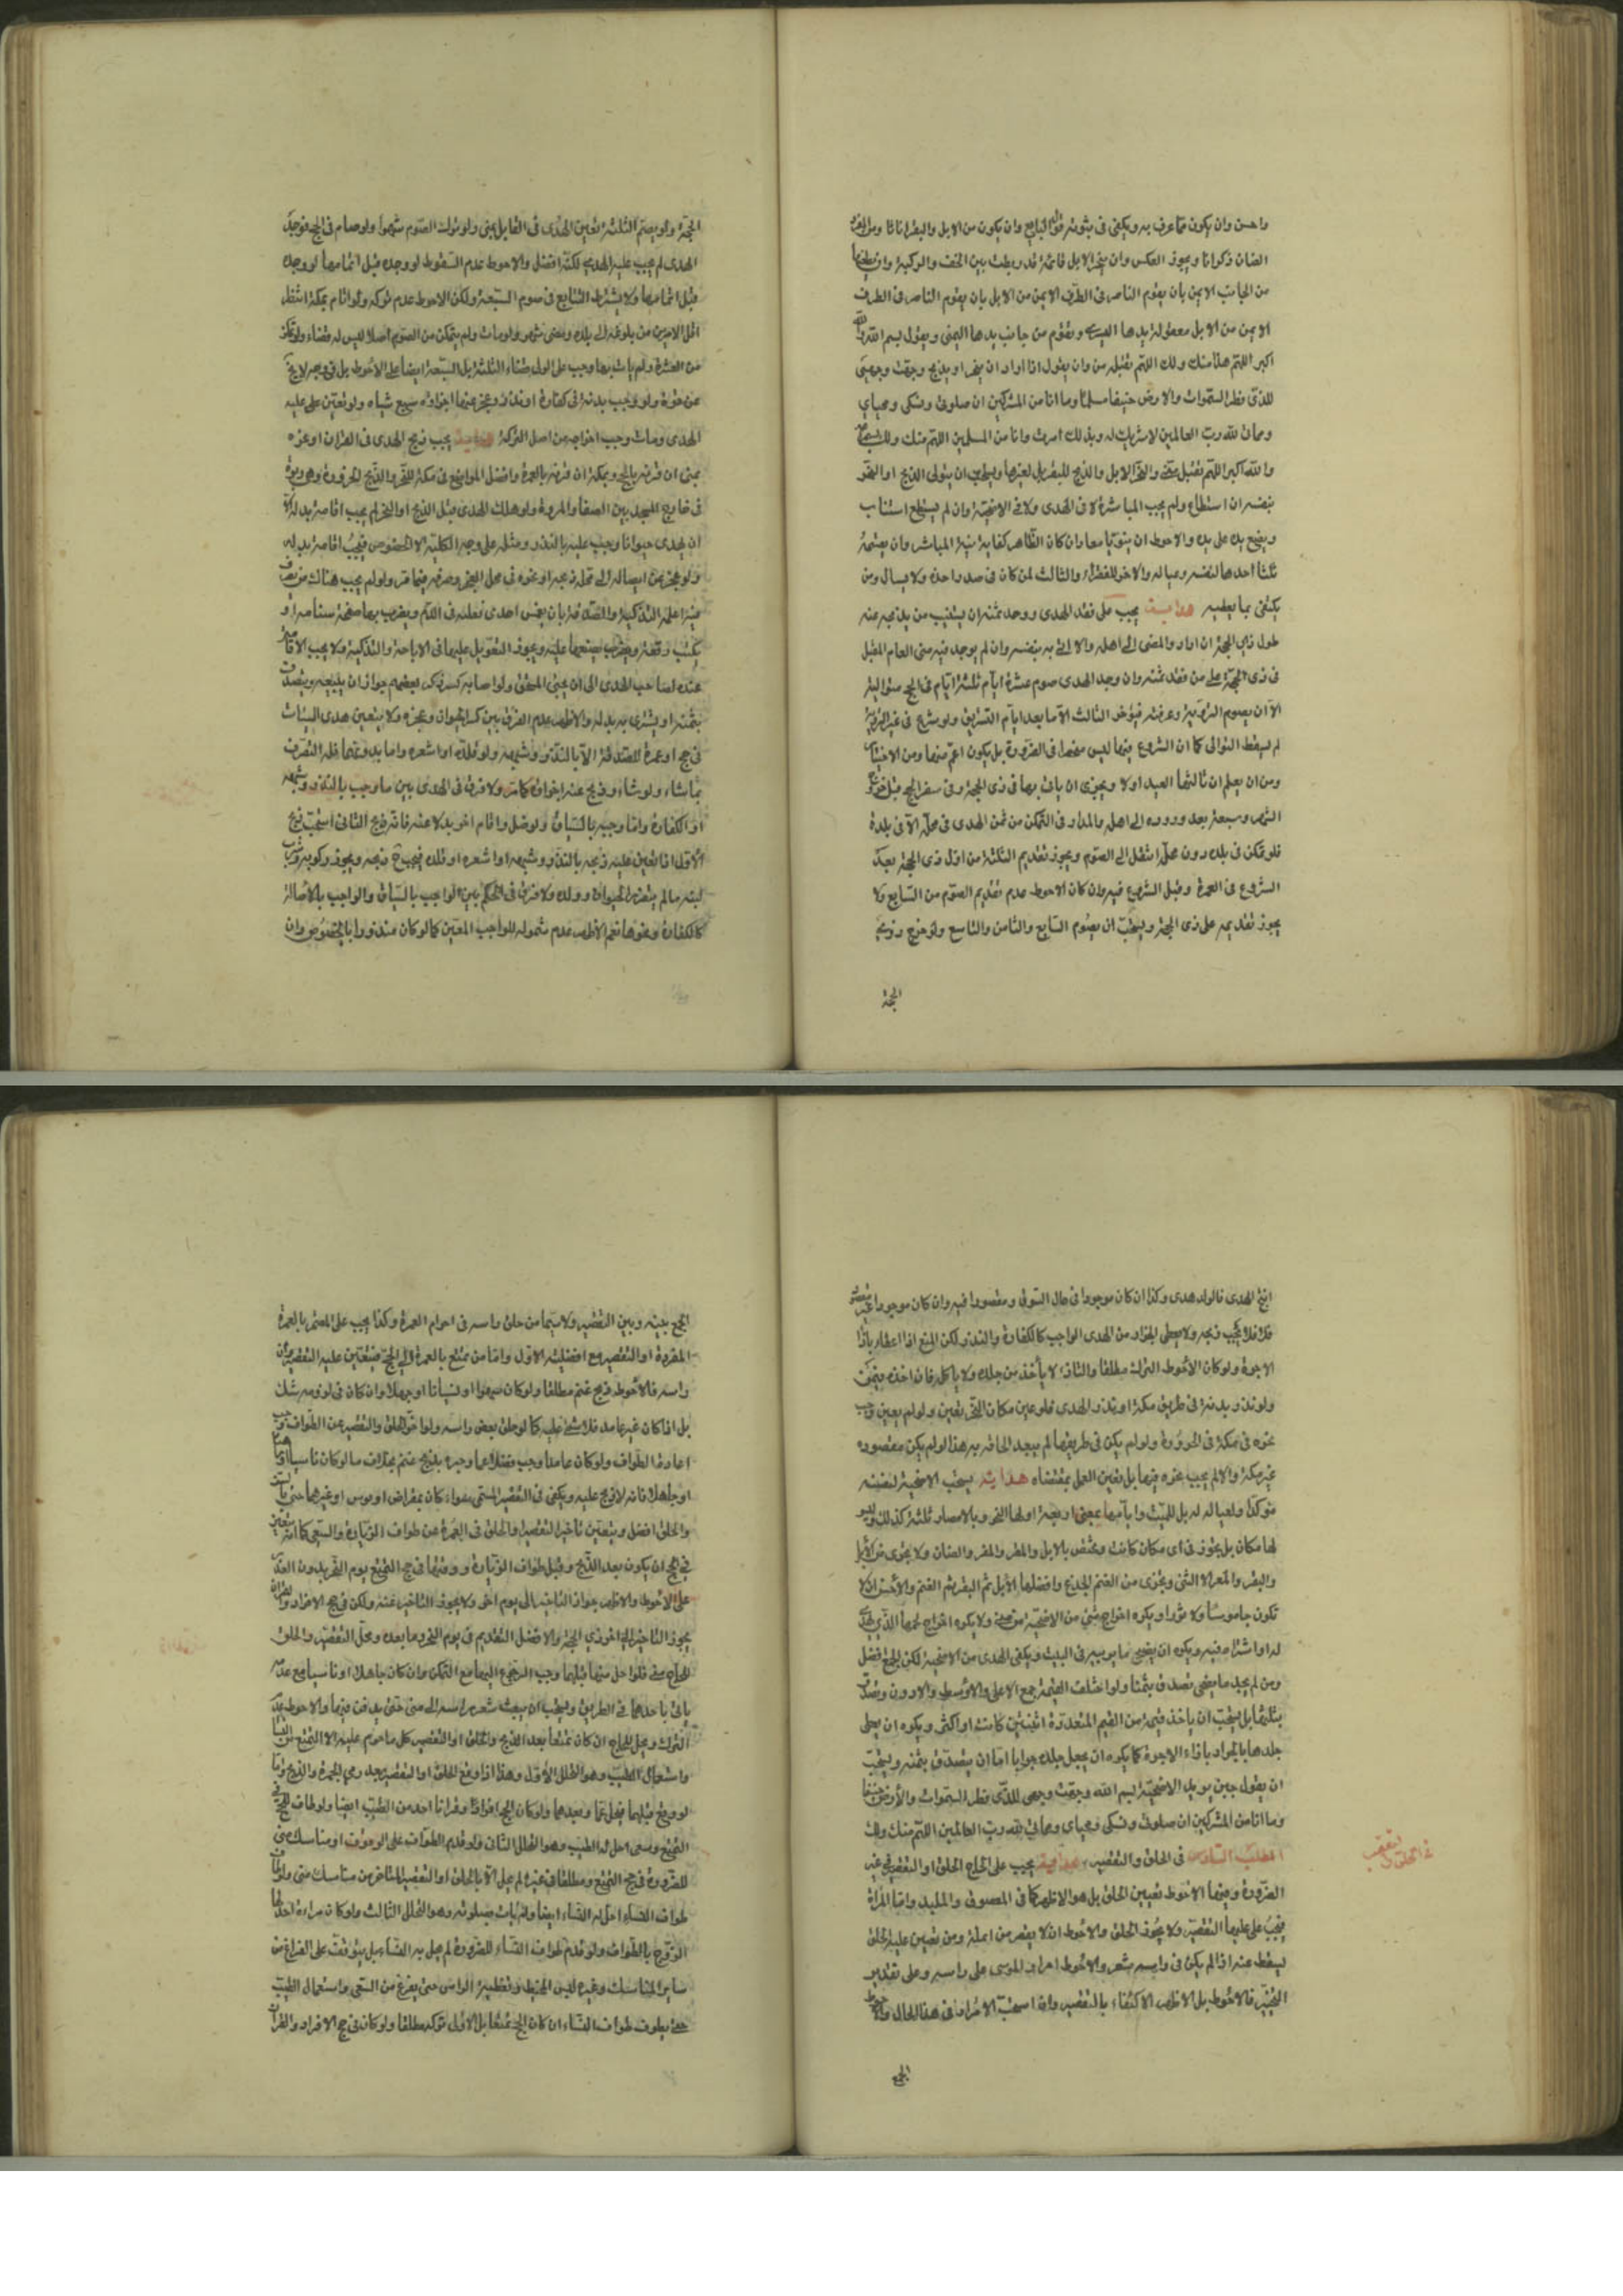 واحسن وان يكون مما عرف به ويكفى فى ثبوته قول البايع وان يكون من الابل والبقر اناثا ومن المعز
الضان ذكرانا ويجوز العكس وان ينحر الابل قائمة قد ربطت بين الخف والركبة وان يطعنها
من الجانب الايمن بان يقوم الناحر فى الطرف الايمن من الابل بان يقوم الناحر فى الطرف
الايمن من الابل معقولة يدها اليسرى ويقوم من جانب يدها اليمنى ويقول بسم الله والله
اكبر اللهم هذا منك ولك اللهم تقبله من وان يقول اذا اراد ان ينحر او يذبح وجهت وجهى
للذى فطر السموات والارض حنيفا مسلما وما انا من المشركين ان صلوتى ونسكى ومحياي
ومماتى لله رب العالمين لا شريك له وبذلك امرت وانا من المسلمين اللهم منك ولك بسم الله
والله اكبر اللهم تقبل منى والنحر للابل والذبح للبقر بل لغيرها ويستحب ان يتولى الذبح او النحر
بنفسه ان استطاع ولم يجب المباشرة لا فى الهدى ولا فى الاضحية وان لم يستطع استناب
ويضع يده على يده والاحوط ان ينويا معا وان كان الظاهر كفاية نية المباشر وان يقسمه
ثلثا احدها لنفسه وعياله والاخر للفقراء والثالث لمن كان فى صدد اخذه ولا يسال ومن
يكتفى بما يعطيه هداية يجب على من فقد الهدى ووجد ثمنه ان يستنيب من يذبحه عنه
طول ذى الحجة ان اراد المضى الى اهله والا اتى به بنفسه وان لم يوجد فيه فمن العام المقبل
فى ذى الحجة على من فقد ثمنه وان وجد الهدى صوم عشرة ايام ثلثة ايام فى الحج متوالية
الا ان يصوم التروية وعرفة فيؤخر الثالث الا ما بعد ايام التشريق ولو شرع فى غير التروية
لم يسقط التوالى كما ان الشروع فيها ليس منحصرا فى الضرورة بل يكون اعم منها ومن الاختيار
ومن ان يعلم ان ثالثها العيد اولا ويجزى ان ياتى بها فى ذى الحجة وفى سفر الحج قبل خروج
الشهر وسبعة بعد وروده الى اهله والمدار فى التمكن من ثمن الهدى فى محله لا فى بلده
فلو تمكن فى بلده دون محله انتقل الى الصوم ويجوز تقديم الثلثة من اول ذى الحجة بعد
الشروع فى العمرة وقبل الشروع فيه وان كان الاحوط عدم تقديم الصوم من السابع ولا
يجوز تقديمه على ذى الحجة ويستحب ان يصوم السابع والثامن والتاسع ولو خرج ذو
الحجة
الحجة ولم يصم الثلثة تعين الهدى فى القابل بمنى ولو ترك الصوم سهوا ولو صام فى الحج فوجد
الهدى لم يجب عليه الهدى لكنه افضل والاحوط عدم السقوط لو وجده قبل اتمامها لو وجده
قبل اتمامها ولا يشترط التتابع فى صوم السبعة ولكن الاحوط عدم تركه ولو اقام بمكة انتظر
اقل الامرين من بلوغه الى بلده ومضى شهر ولو مات ولم يتمكن من الصوم اصلا ليس له قضاء ولو تمكن
من العشرة ولم يات بها وجب على الولى قضاء الثلثة بل السبعة ايضا على الاحوط بل
ولو وجب بدنة فى كفارة او نذر وعجز عنها اجزاه سبع شياه ولو تعين على عليه
الهدى ومات وجب اخراجه من اصل التركة هداية يجب ذبح الهدى فى القران او غيره
بمنى ان قرنه بالحج وبمكة ان قرنه بالعمرة وافضل المواضع فى مكة للنحر والذبح الحزورة وهى
فى خارج المسجد بين الصفا والمروة ولو هلك الهدى قبل الذبح او النحر لم يجب اقامة بدله الا
ان يهدى حيوانا وجب عليه بالنذر ومثله على وجه الكلية لا الخصوص فيجب اقامة بدله
ولو عجز عن ايصاله الى محله ذبحه او نحره فى محل العجز وصرفه فيما مر ولو لم يجب هناك من
اعلمه التذكية والصدقة بان يغمس احدى نعليه فى الدم ويضرب بها صفحة سنامه او
يكتب رقعة ويضعها عليه ويجوز التعويل عليها فى الاباحة والتذكية ولا يجب الاقامة
عنده لصاحب الهدى الى ان يجئ المستحق ولو اصابه كسر ذكر بعضهم جواز ان يبيعه ويتصدق
بثمنه او يشترى به بدله والاظهر عدم الفرق بين كسر الحيوان وعجزه ولا يتعين هدى السياق
فى حج او عمرة للصدقة الا بالنذر وشبهه ولو قلده او اشعره واما بدونهما فله التصرف
بما شاء ولو شاء وذبح عنه اجزاه كما مر ولا فرق فى الهدى بين ما وجب بالنذر وشبهه
او الكفارة واما وجب بالسياق ولو ضل واقام اخر بدلا عنه فانه ذبح الثانى استحب ذبح
الاول اذا تعين عليه ذبحه بالنذر وشبهه او اشعره او قلده فيجب ذبحه ويجوز ركوبه وشرب
لبنه ما لم يتضرر الحيوان وولده ولا فرق فى الحكم بين الواجب بالسياق والواجب بالاصالة
كالكفارة ونحوها نعم الاظهر عدم شموله للواجب المعين كما لو كان منذورا بالخصوص وان
انتج الهدى فالولد هدى وكذا ان كان موجودا فى حال السوق ومقصودا فيه وان كان موجودا غير مقصود
فلا يجب ذبحه ولا يعطى الجزار من الهدى الواجب كالكفارة والنذر ولكن المنع اذا اعطاه بازاء
الاجرة ولو كان الاحوط الترك مطلقا والثانى لا يأخذ من جلده ولا ياكل فان اخذه
ولو نذر بدنة فى طريق مكة او نذر الهدى فلو عين مكان النحر تعين ولو لم يعين وجب
نحره فى مكة فى الحزورة ولو لم يكن فى طريقها لم يبعد الحاقه به هذا لو لم يكن مقصوده
غير مكة والا لم يجب نحره فيها بل تعين العمل بمقتضاه هداية يستحب الاضحية لنفسه
مؤكدا ولعياله له بل للميت وايامها بمنى اربعة اولها النحر وبالامصار ثلثة كذلك وليس
لها مكان بل يجوز فى اى مكان كانت وتختص بالابل والبقر والمعز والضان ولا يجزى من الابل
والبقر والمعز الا الثنى ويجزى من الغنم الجذع وافضلها الابل ثم البقر ثم الغنم والاحسن ان لا
تكون جاموسا ولا ثورا ويكره اخراج شئ من الاضحية من منى ولا يكره اخراج لحمها الذى يهدى
له او اشتراه فيه ويكره ان يضحى ما يربيه فى البيت ويكفى الهدى من الاضحية لكن الجمع افضل
ومن لم يجد ما يضحى تصدق بثمنها ولو اختلف القيمة جمع الاعلى والاوسط والادون وتصدق
بثلثها بل يستحب ان ياخذ قيمة من القيم المتعددة اثنتين كانت او اكثر ويكره ان يعطى
جلدها بالجزار بازاء الاجرة كما يكره ان يجعل جلده جرابا اما ان يتصدق بثمنه ويستحب
ان يقول حين يريد الاضحية بسم الله وجهت وجهى للذى فطر السموات والارض حنيفا
وما انا من المشركين ان صلوتى ونسكى ومحياى ومماتى لله رب العالمين اللهم منك ولك
المطلب السادس فى الحلق والتقصير هداية يجب على الحاج الحلق او التقصير فى غير
الصرورة وفيها الاحوط تعيين الحلق بل هو الاظهر كما فى المعصوف والملبد واما المراة
فيجب عليها التقصير ولا يجوز الحلق والاحوط ان لا يقصر من انملة ومن تعين عليه الحلق
يسقط عنه اذا لم يكن فى راسه شعر والاحوط امرار الموسى على راسه وعلى تقدير
التخيير فالاحوط بل الاظهر الاكتفاء بالتقصير واذا استحب الامرار فى هذا الحال والاحوط
الجمع
فى الحلق والتقصير
الجمع بينه وبين التقصير ولا سيما من حلق راسه فى احرام العمرة وكذا يجب على المعتمر بالعمرة
المفردة او التقصير مع افضلية الاول واما من تمتع بالعمرة الى الحج فيتعين عليه التقصير
راسه فالاحوط ذبح غنم مطلقا ولو كان سهوا او نسيانا او جهلا وان كان فى لزومه شك
بل اذا كان غير عامد فلا شئ عليه كما لو حلق بعض راسه ولو اخر الحلق والتقصير عن الطواف وجب
اعادة الطواف ولو كان عامدا وجب جبره بذبح غنم بخلاف ما لو كان ناسيا
او جاهلا فانه لا ذبح عليه ويكفى فى التقصير المسمى سواء كان بمقراض او موس او غيرهما
والحلق افضل ويتعين تأخير التقصير والحلق فى العمرة عن طواف الزيارة والسعى كما انه يتعين
فى الحج ان يكون بعد الذبح وقبل طواف الزيارة ووقتها فى حج التمتع يوم النحر بدون العذر
على الاحوط والاظهر جواز التاخير الى يوم اخر ولا يجوز التاخير عنه ولكن فى حج الافراد والقران
يجوز التاخير الى اخر ذى الحجة والافضل التقديم فى يوم النحر وما بعده ومحل التقصير والحلق
للحاج منى فلو رحل منها قبلهما وجب الرجوع اليها مع التمكن وان كان جاهلا او ناسيا ومع عدمه
ياتى باحدهما فى الطريق ويستحب ان يبعث شعر راسه الى منى حتى يدفن فيها والاحوط عدم
الترك ويحل للحاج ان كان متمتعا بعد الذبح والحلق او التقصير كل ما حرم عليه الا التمتع من النساء
واستعمال الطيب وهو التحلل الاول وهذا اذا وقع الحلق او التقصير بعد رمي الجمرة والذبح واما
لو وقع قبلهما فيحل بهما وبعدهما ولو كان الحج افرادا وقرانا احد من الطيب ايضا ولو طاف للحج
التمتع وسعى احل له الطيب وهو التحلل الثانى ولو قدم الطواف على الوقوف او مناسك منى
للضرورة فى حج التمتع ومطلقا فى غيره لم يحل الا بالحلق او التقصير المتاخر من مناسك منى ولو طاف
طواف النساء احل له النساء ايضا وان بات بصلوته وهو التحلل الثالث ولو كان مراءة احل لها
الزوج بالطواف ولو قدم طواف النساء للضرورة لم يحل به النساء بل يتوقف على الفراغ من
ساير المناسك وغيره للبس المخيط وتغطية الراس حتى يفرغ من السعى واستعمال الطيب
حتى يطوف طواف النساء ان كان الحج تمتعا بل الاولى تركه مطلقا ولو كان فى حج الافراد والقران